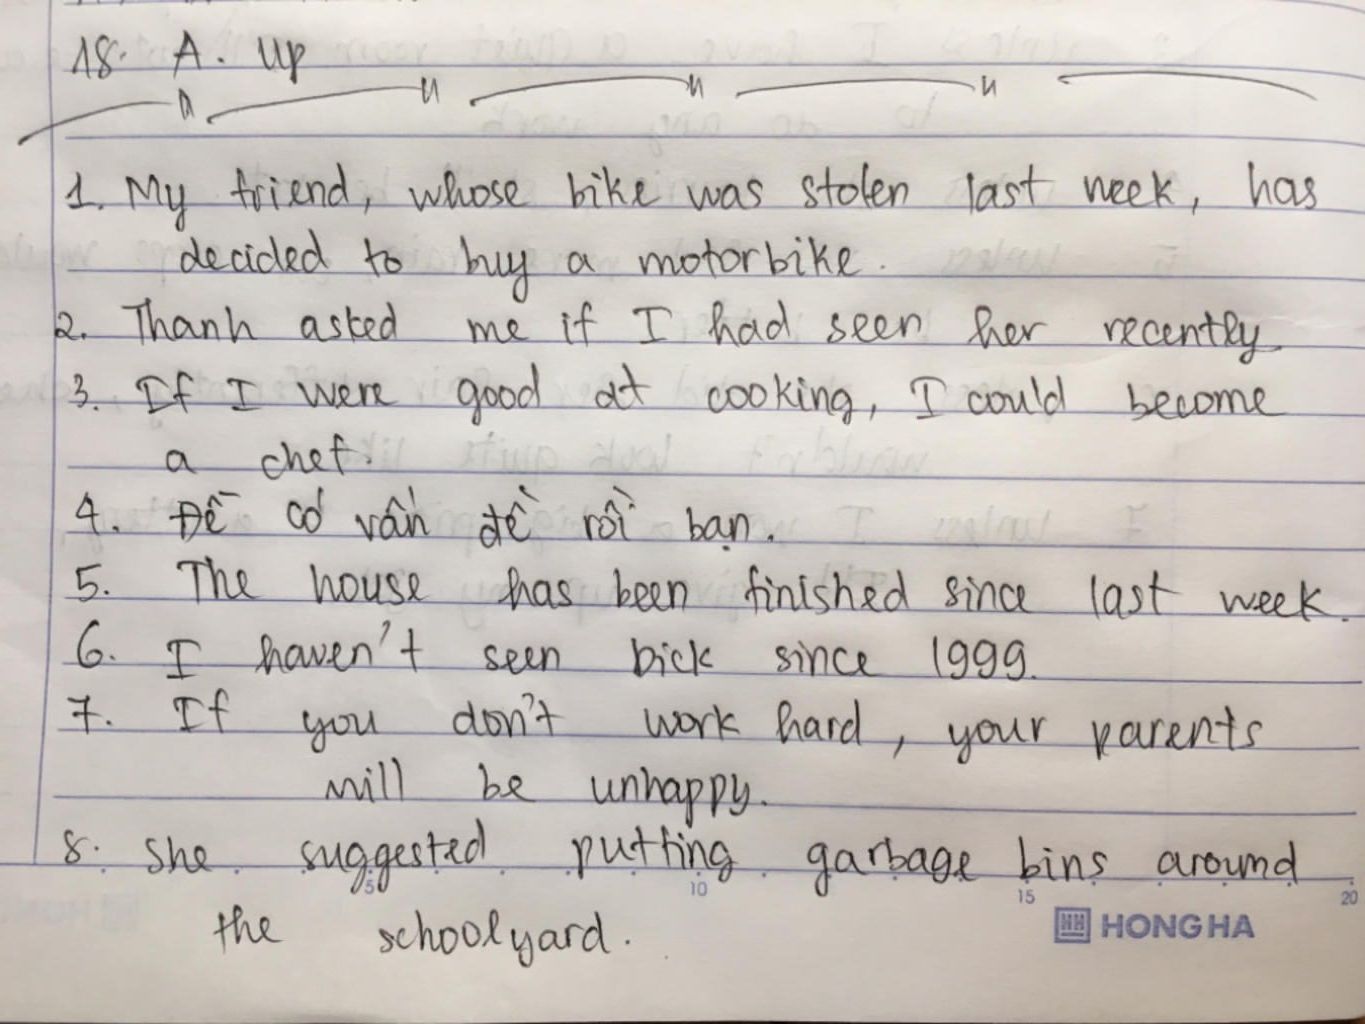 18. A. Up
1. My friend, whose bike was stolen last week, has
decided to buy a motorbike.
2. Thanh asked me if I had seen her recently.
3. If I were good at cooking, I could become
a chef.
4. Đề có vấn đề rồi bạn.
5. The house has been finished since last week.
6. I haven't seen bick since 1999.
7. If you don't work hard, your parents
will be unhappy.
8. She suggested putting garbage bins around
5 10 15 20
the schoolyard.
HONG HA